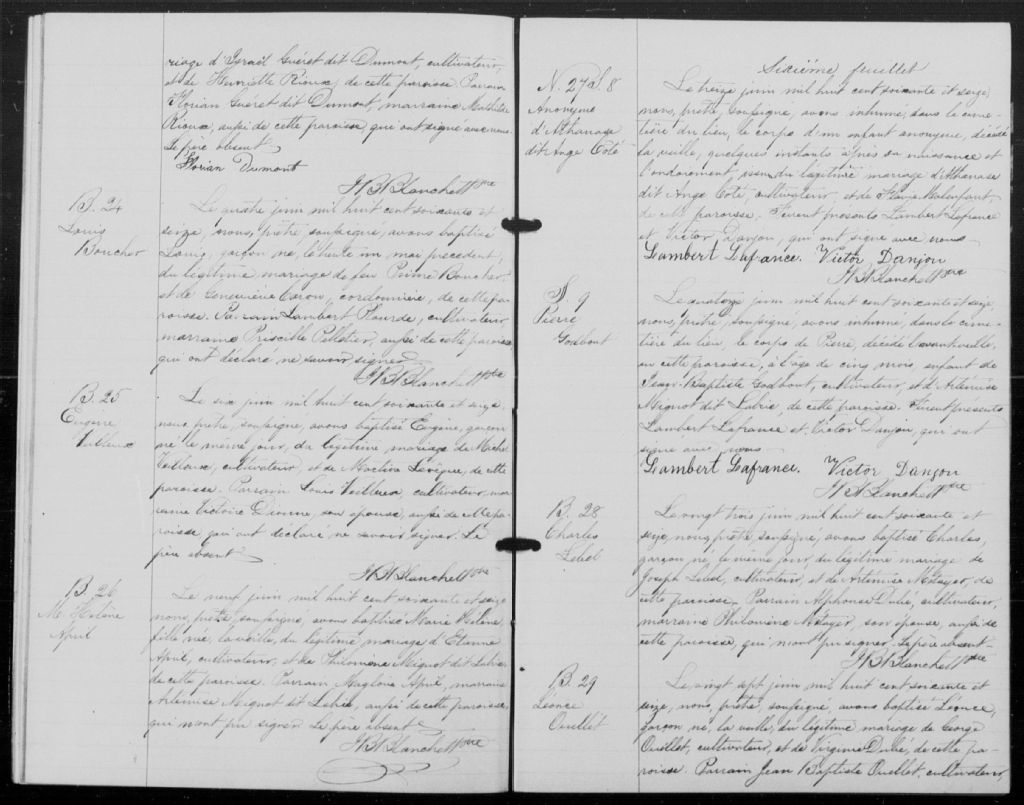 riage d'Israël Guéret dit Dumont, cultivateur,
et de Henriette Rioux, de cette paroisse. Parrain
Florian Guéret dit Dumont, marraine Mathilde
Rioux, aussi de cette paroisse, qui ont signé avec nous.
Le père absent
Florian Dumont
J. B. Blanchett ptre
B. 24
Louis
Boucher
Le quatre juin mil huit cent soixante et
seize, nous, prêtre, soussigné, avons baptisé
Louis, garçon né, le trente un mai précédent,
du légitime mariage de feu Prime Boucher
et de Geneviève Caron, cordonnière, de cette pa-
roisse. Parrain Lambert Plourde, cultivateur,
marraine Priscille Pelletier, aussi de cette paroisse,
qui ont déclaré ne savoir signer.
J. B. Blanchett ptre
B. 25
Eugène
Veilleux
Le six juin mil huit cent soixante et seize,
nous, prêtre, soussigné, avons baptisé Eugène, garçon
né le même jour, du légitime mariage de Michel
Veilleux, cultivateur, et de Lévêque, de cette
paroisse. Parrain Louis Veilleux, cultivateur, mar-
raine Victoire Dionne, son épouse, aussi de cette pa-
roisse qui ont déclaré ne savoir signer. Le
père absent
J. B. Blanchett ptre
B. 26
M. Hélène
April
Le neuf juin mil huit cent soixante et seize
nous, prêtre, soussigné, avons baptisé Marie Hélène,
fille née, la veille, du légitime mariage d'Etienne
April, cultivateur, et de Philomène Mignot dit Labrie
de cette paroisse. Parrain Magloire April, marraine
Artémise Mignot dit Labrie, aussi de cette paroisse,
qui n'ont pu signer. Le père absent
J. B. Blanchett ptre
Sixième feuillet
N. 27 S. 8
Anonyme
d'Athanase
dit Ange Coté
Le treize juin mil huit cent soixante et seize
nous, prêtre, soussigné, avons inhumé, dans le cime-
tière du lieu, le corps d'un enfant anonyme, décédé
la veille, quelques instants après sa naissance et
l'ondoiement, issu du légitime mariage d'Athanase
dit Ange Coté, cultivateur, et de Flavie Malenfant,
de cette paroisse. Furent présents Lambert Lafrance
et Victor Danjou, qui ont signé avec nous
Lambert Lafrance. Victor Danjou
J. B. Blanchett ptre
S. 9
Pierre
Godbout
Le quatorze juin mil huit cent soixante et seize
nous, prêtre, soussigné, avons inhumé, dans le cime-
tière du lieu, le corps de Pierre, décédé l'avant veille,
en cette paroisse, à l'âge de cinq mois, enfant de
Jean-Baptiste Godbout, cultivateur, et d'Artémise
Mignot dit Labrie, de cette paroisse. Furent présents
Lambert Lafrance et Victor Danjou, qui ont
signé avec nous
Lambert Lafrance. Victor Danjou
J. B. Blanchett ptre
B. 28
Charles
Lebel
Le vingt trois juin mil huit cent soixante et
seize, nous, prêtre, soussigné, avons baptisé Charles,
garçon né, le même jour, du légitime mariage de
Joseph Lebel, cultivateur, et de Artémise Métayer, de
cette paroisse. Parrain Alphonse Dubé, cultivateur,
marraine Philomène Métayer, son épouse, aussi de
cette paroisse, qui n'ont pu signer. Le père absent
J. B. Blanchett ptre
B. 29
Léonce
Ouellet
Le vingt sept juin mil huit cent soixante et
seize, nous, prêtre, soussigné, avons baptisé Léonce,
garçon né, la veille, du légitime mariage de George
Ouellet, cultivateur, et de Virginie Dubé, de cette pa-
roisse. Parrain Jean Baptiste Ouellet, cultivateur,